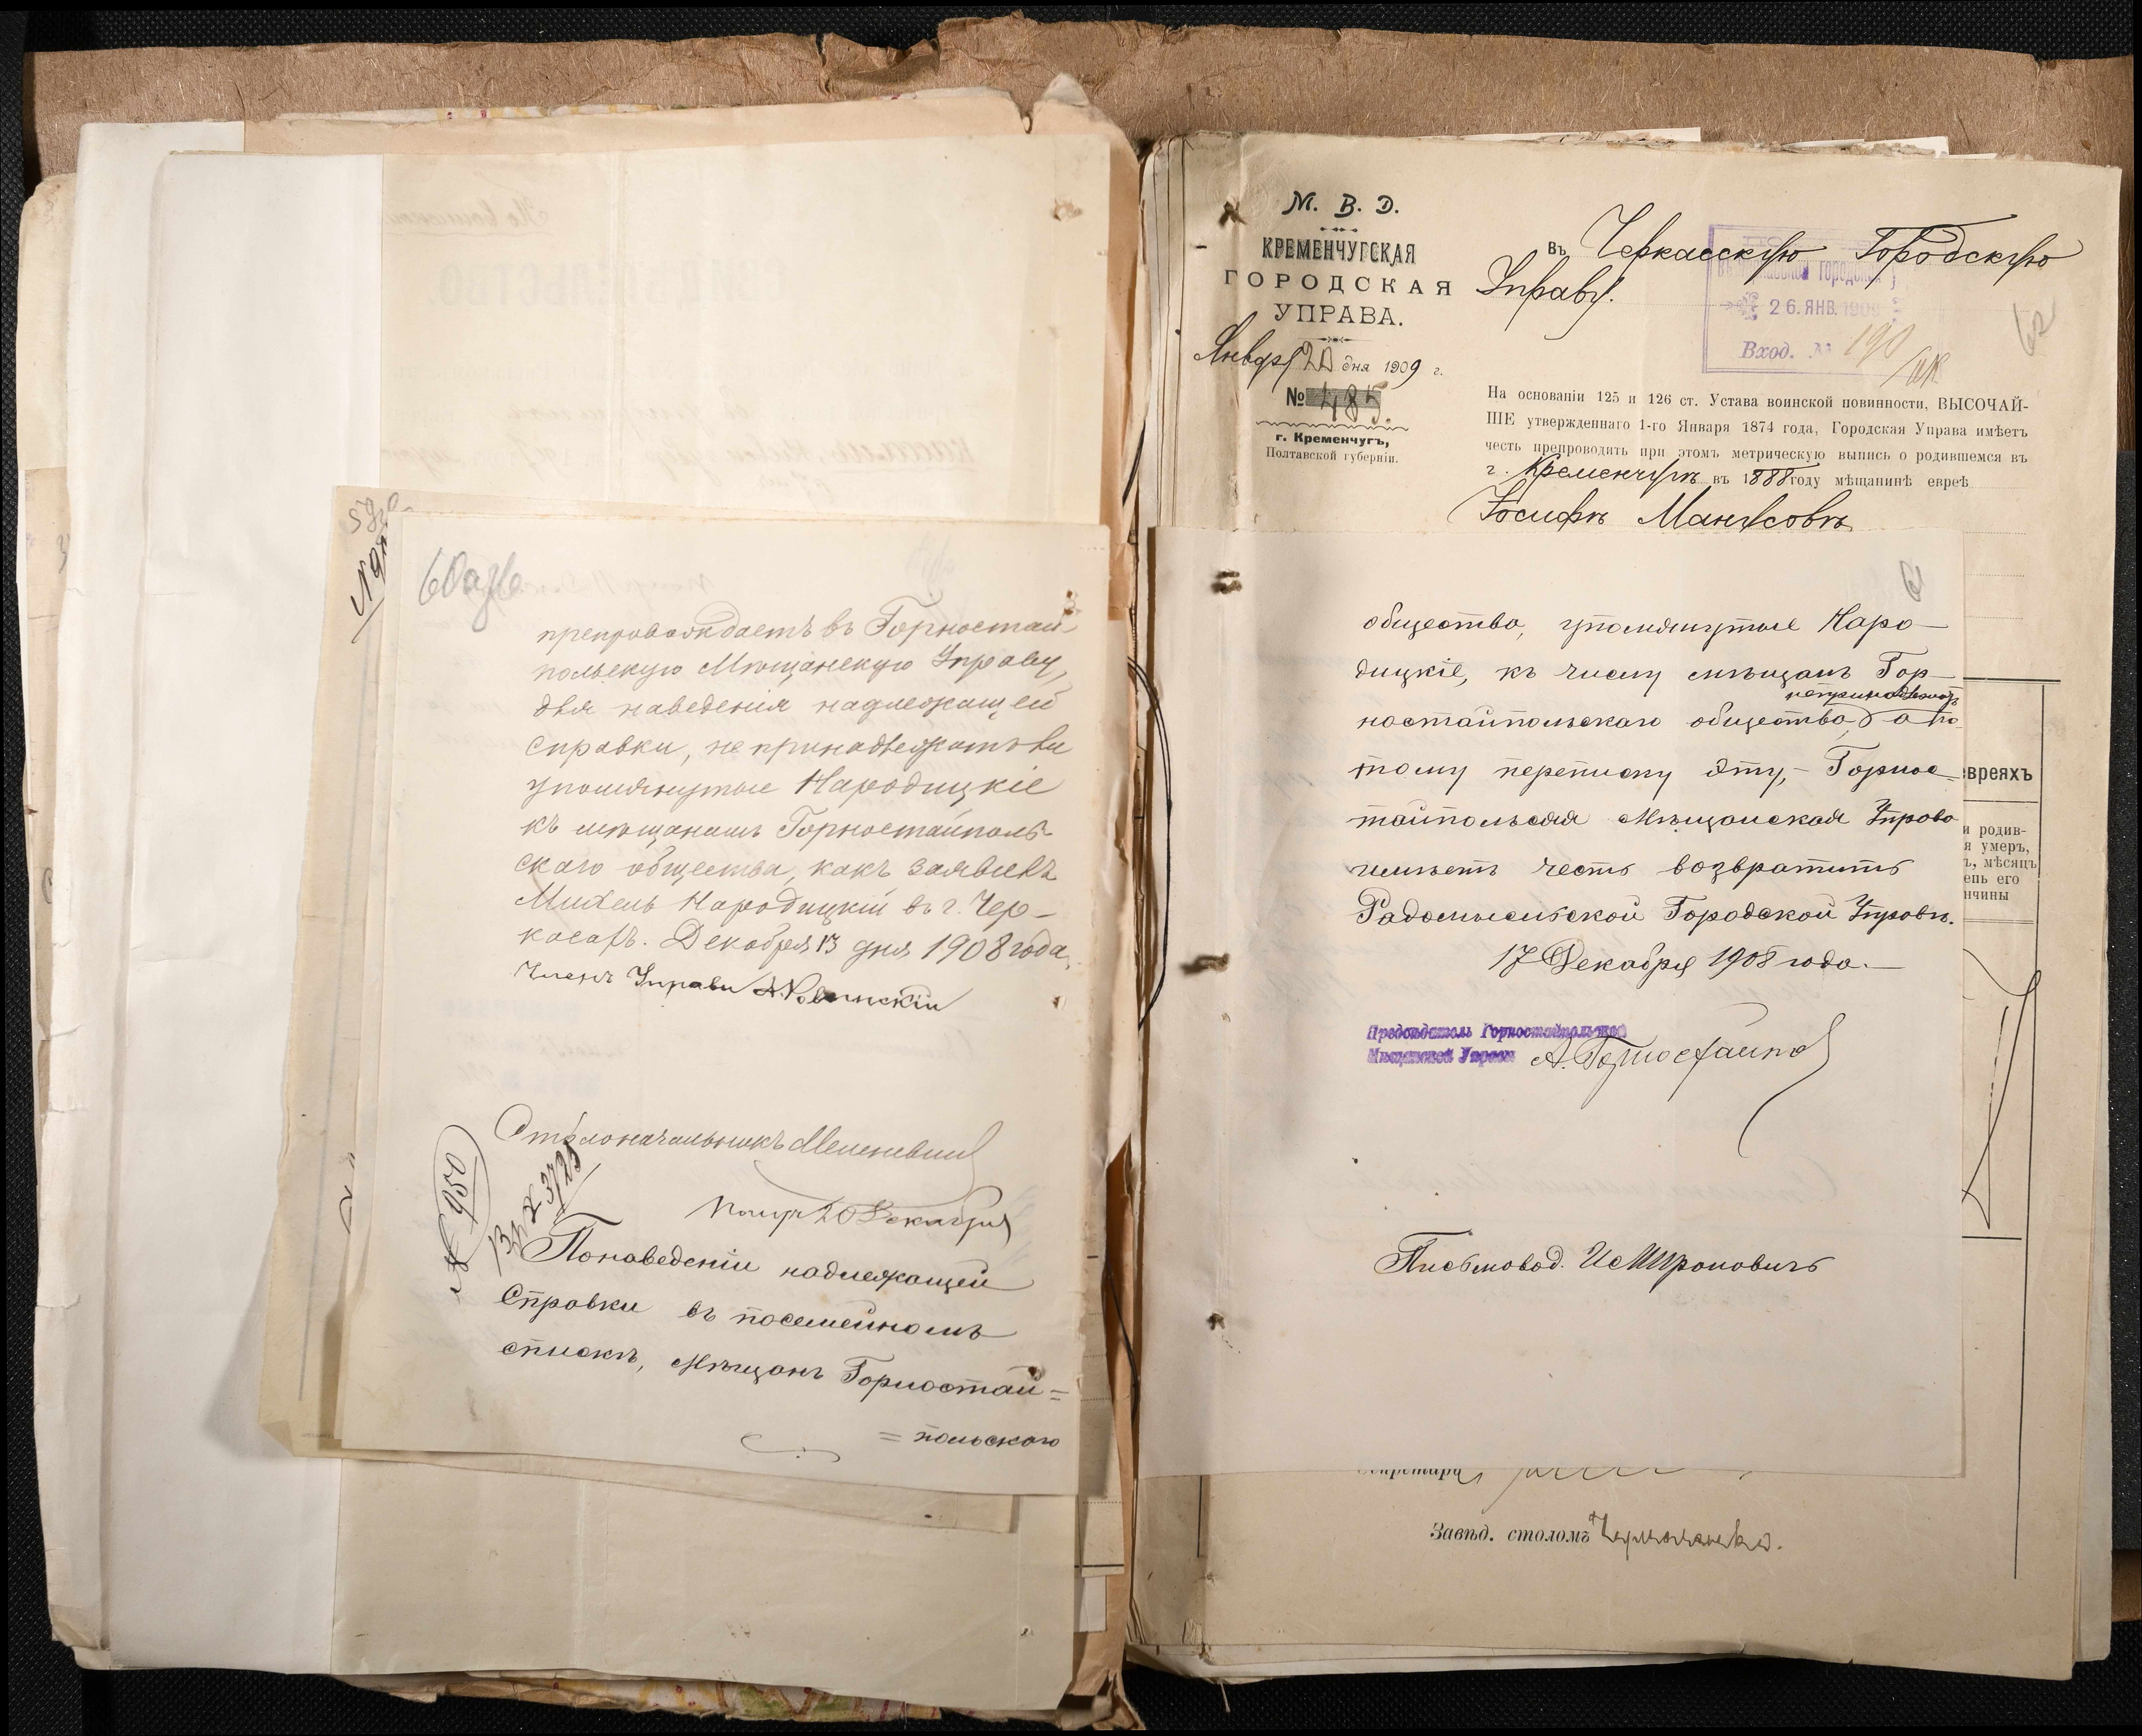 60 аге
препровождаетъ въ Горностай-
польскую Мѣщанскую Управу,
для наведенія надлежащей
справки, не принадлежатъ ли
упомянутые Народицкіе
къ мѣщанамъ Горностайполь-
скаго общества, какъ заявилъ
Михель Народицкій въ г. Чер-
касахъ. Декабря 13 дня 1908 года.
Членъ Управы
Столоначальникъ
№ 950
Вх № 3723
Получ 20 Декабря
По наведеніи надлежащей
Справки въ посемейномъ
спискѣ, мѣщанъ Горностай=
=польскаго
М. В. Д.
КРЕМЕНЧУГСКАЯ
ГОРОДСКАЯ
УПРАВА.
Января 20 дня 1909 г.
№ 485.
г. Кременчугъ,
Полтавской губерніи.
Въ Черкасскую Городскую
Управу.
26. ЯНВ. 1909
Вход. № 190
62
На основаніи 125 и 126 ст. Устава воинской повинности, ВЫСОЧАЙ-
ШЕ утвержденнаго 1-го Января 1874 года, Городская Управа имѣетъ
честь препроводить при этомъ метрическую выпись о родившемся въ
г. Кременчугѣ въ 1888 году мѣщанинѣ евреѣ
Іосифѣ Манусовѣ
61
общества, упомянутые Наро-
дицкіе, къ числу мѣщанъ Гор-
ностайпольскаго общества непринадлежатъ, а по-
тому переписку эту,- Горнос-
тайпольская Мѣщанская Управа
имѣетъ честь возвратить
Радомысльской Городской Управѣ.
17 Декабря 1908 года.-
Предсѣдатель Горностайпольской
Мѣщанской Управы А. Горностайпол
Письмовод.
евреяхъ
и родив-
я умеръ,
ъ, мѣсяцъ
ень его
нчины
Секретарь
Завѣд. столомъ